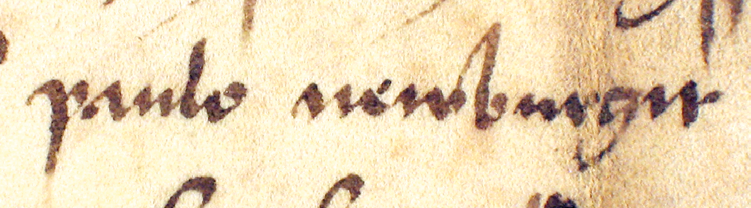 paulo newburger